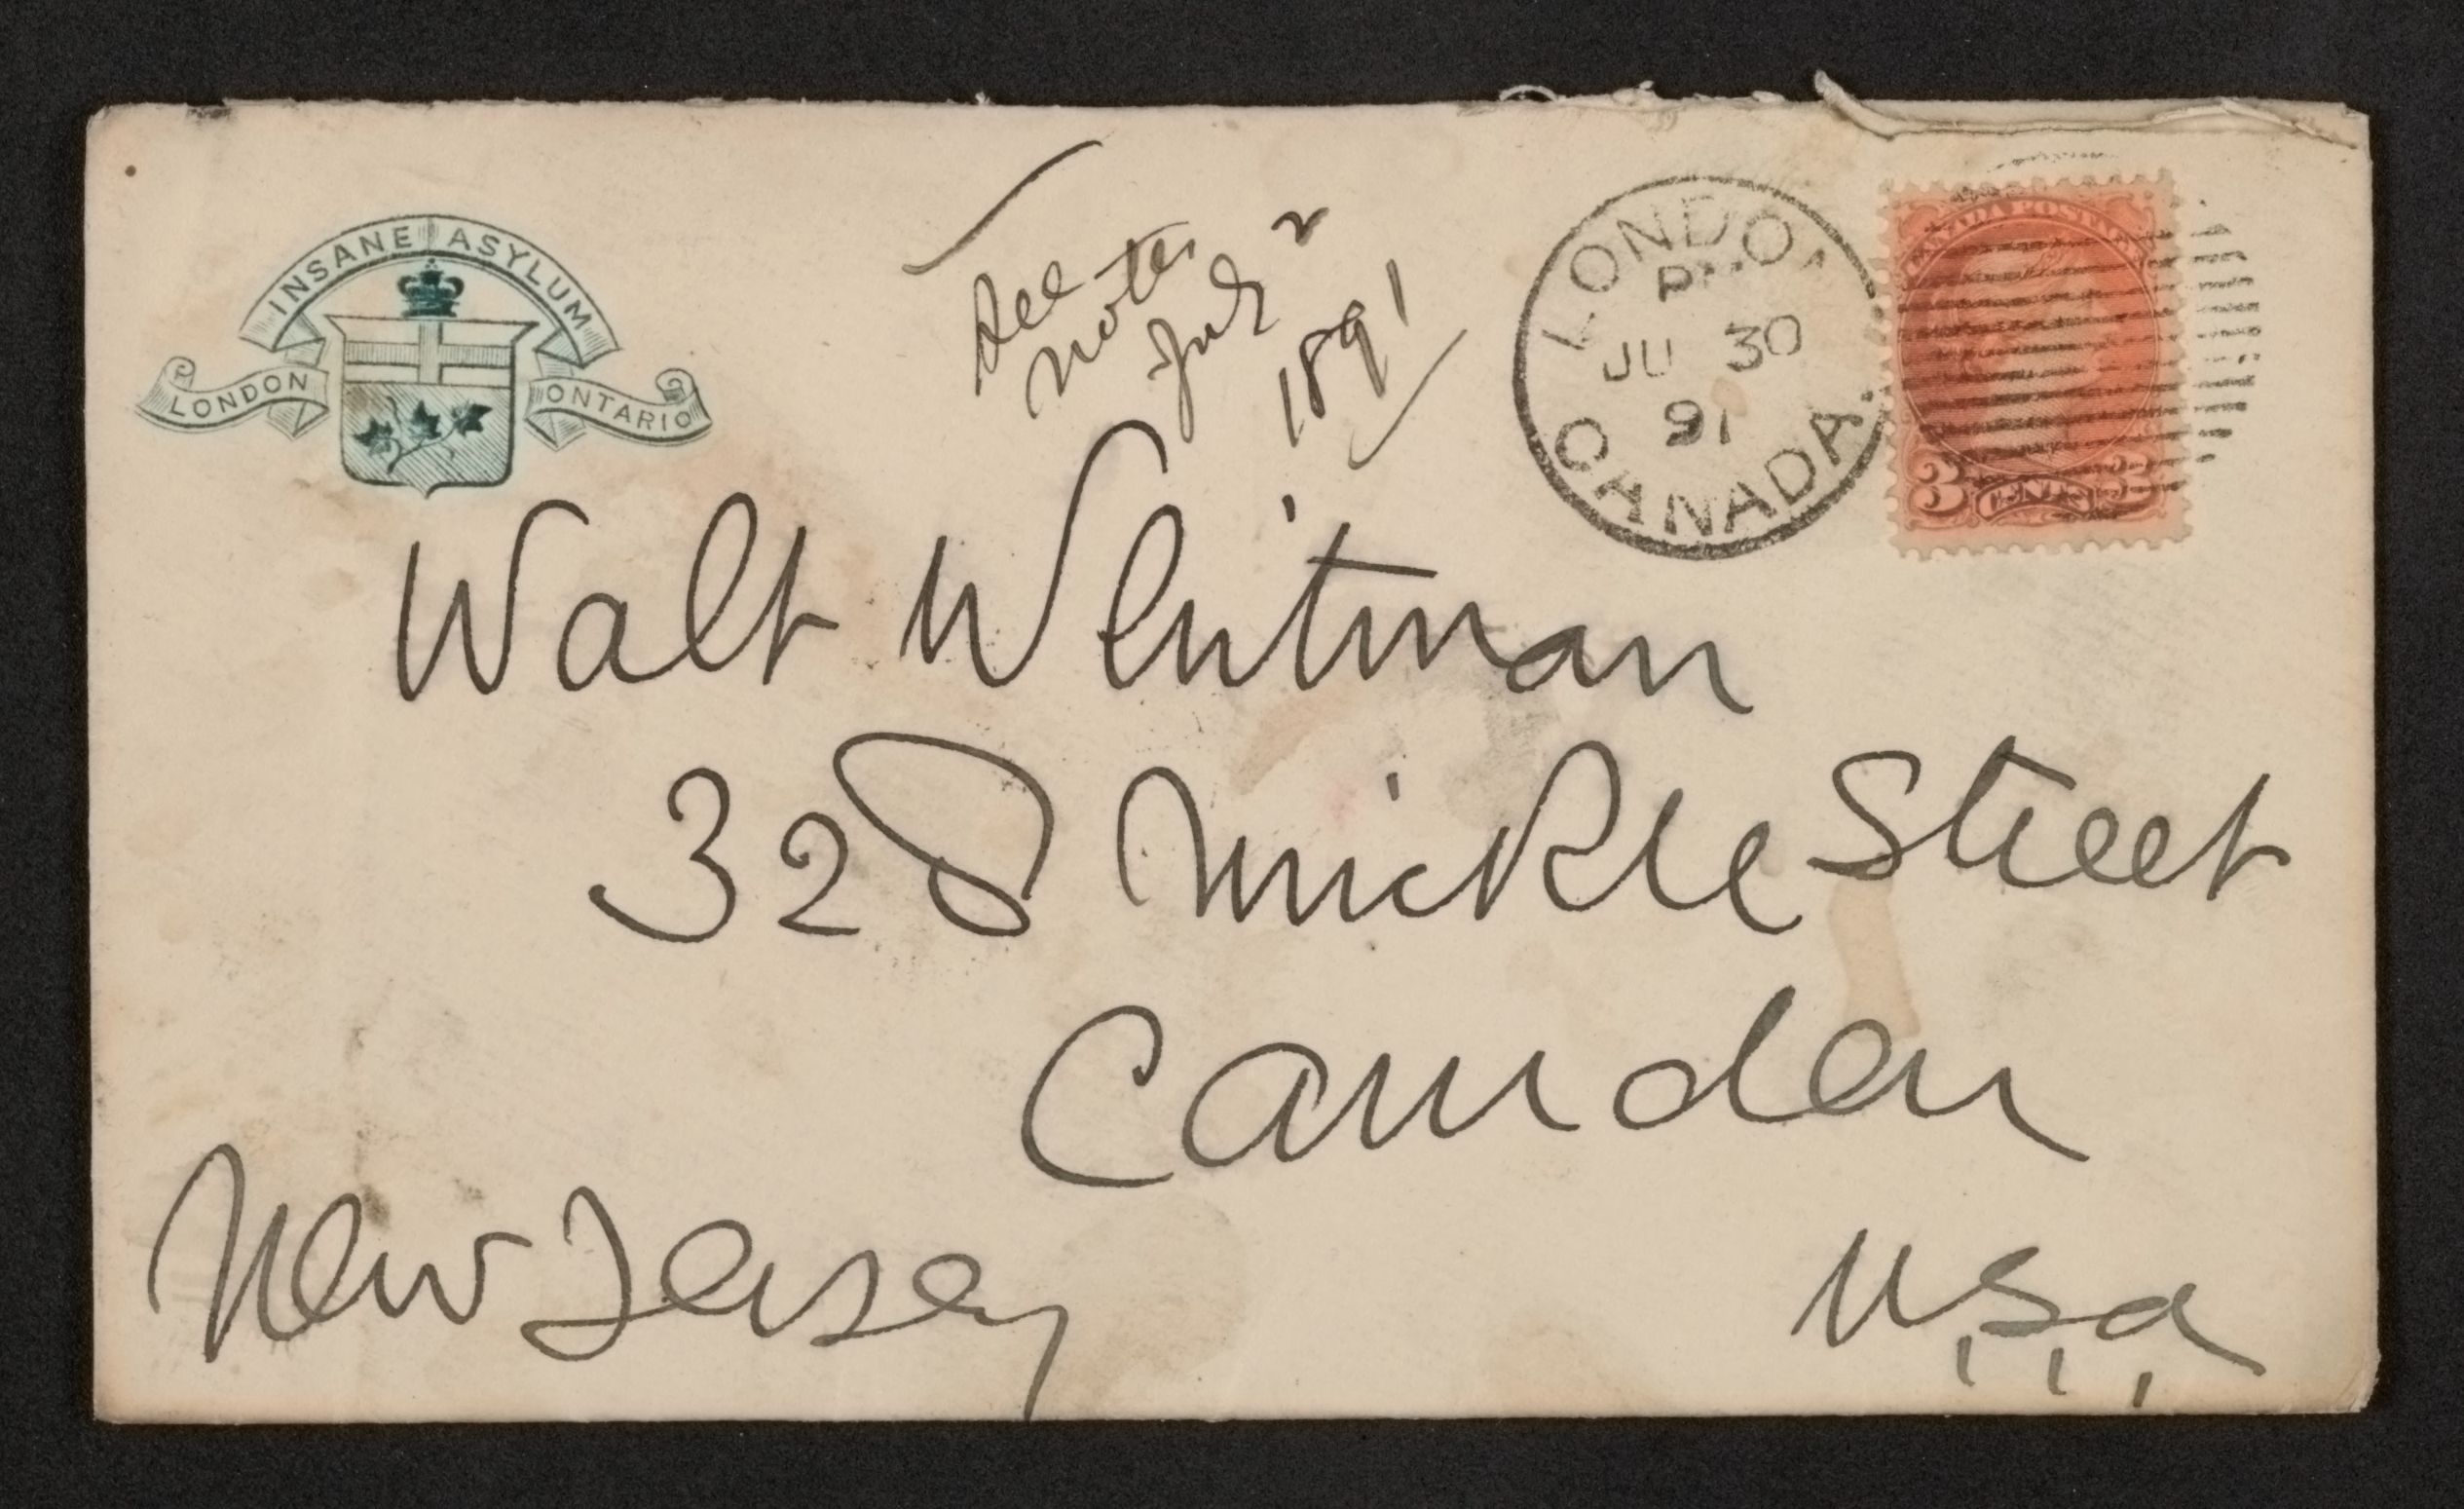 INSANE ASYLUM
LONDON ONTARIO
see
notes
July 2
1891
LONDON
PM
JU 30
91
CANADA.
CANADA POSTAGE
3 CENTS 3
Walt Whitman
328 Mickle Street
Camden
New Jersey
U.S.a